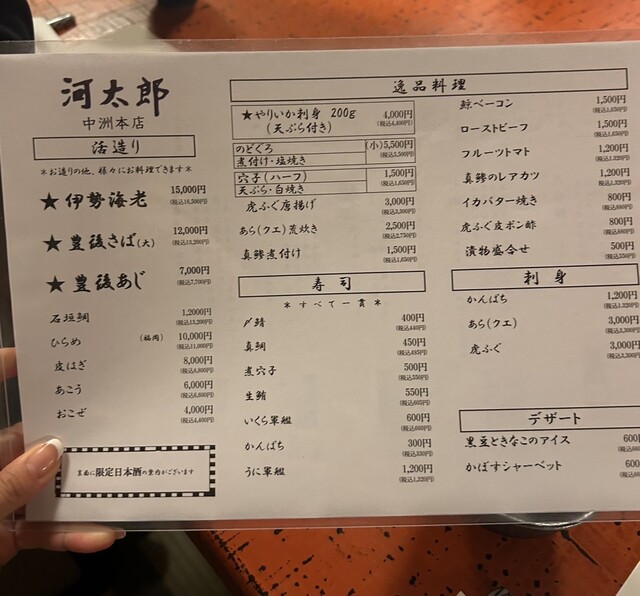 河太郎
中洲本店
活造り
*お造りの他、様々にお料理できます*
★伊勢海老 15,000円
(税込16,500円)
★豊後さば(大) 12,000円
(税込13,200円)
★豊後あじ 7,000円
(税込7,700円)
石垣鯛 1,2000円
(税込13,200円)
ひらめ (福岡) 10,000円
(税込11,000円)
皮はぎ 8,000円
(税込8,800円)
あこう 6,000円
(税込6,600円)
おこぜ 4,000円
(税込4,400円)
裏面に限定日本酒の案内がございます
逸品料理
★やりいか刺身 200g 4,000円
(天ぷら付き) (税込4,400円)
のどぐろ (小)5,500円
煮付け・塩焼き
穴子(ハーフ) 1,500円
天ぷら・白焼き (税込1,650円)
虎ふぐ唐揚げ 3,000円
(税込3,300円)
あら(クエ)荒炊き 2,500円
(税込2,750円)
真鯵煮付け 1,500円
(税込1,650円)
寿司
*すべて一貫*
〆鯖 400円
(税込440円)
真鯛 450円
(税込495円)
煮穴子 500円
(税込550円)
生鮪 550円
(税込605円)
いくら軍艦 600円
(税込660円)
かんぱち 300円
(税込330円)
うに軍艦 1,200円
(税込1,320円)
鯨ベーコン 1,500円
(税込1,650円)
ローストビーフ 1,500円
(税込1,650円)
フルーツトマト 1,200円
(税込1,320円)
真鯵のレアカツ 1,200円
(税込1,320円)
イカバター焼き 800円
(税込880円)
虎ふぐ皮ポン酢 800円
(税込880円)
漬物盛合せ 500円
(税込550円)
刺身
かんぱち 1,200円
(税込1,320円)
あら(クエ) 3,000円
(税込3,300円)
虎ふぐ 3,000円
(税込3,300円)
デザート
黒豆ときなこのアイス 600
かぼすシャーベット 600